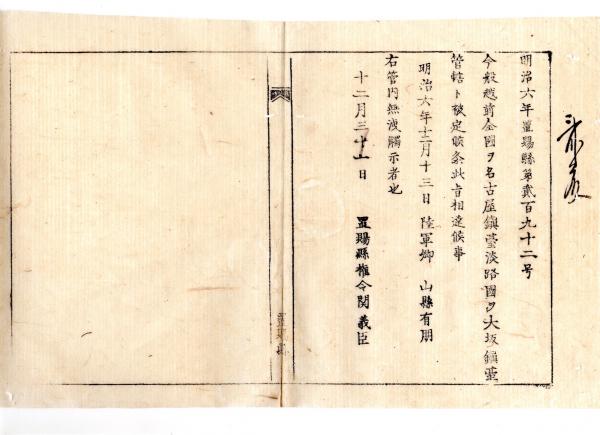 明治六年置賜縣第貳百九十二号
今般越前全國ヲ名古屋鎮臺淡路國ヲ大坂鎮臺
管轄ト被定候条此旨相達候事
明治六年十二月十三日 陸軍卿 山縣有朋
右管内無洩觸示者也
十二月三十一日 置賜縣権令関義臣
置賜縣